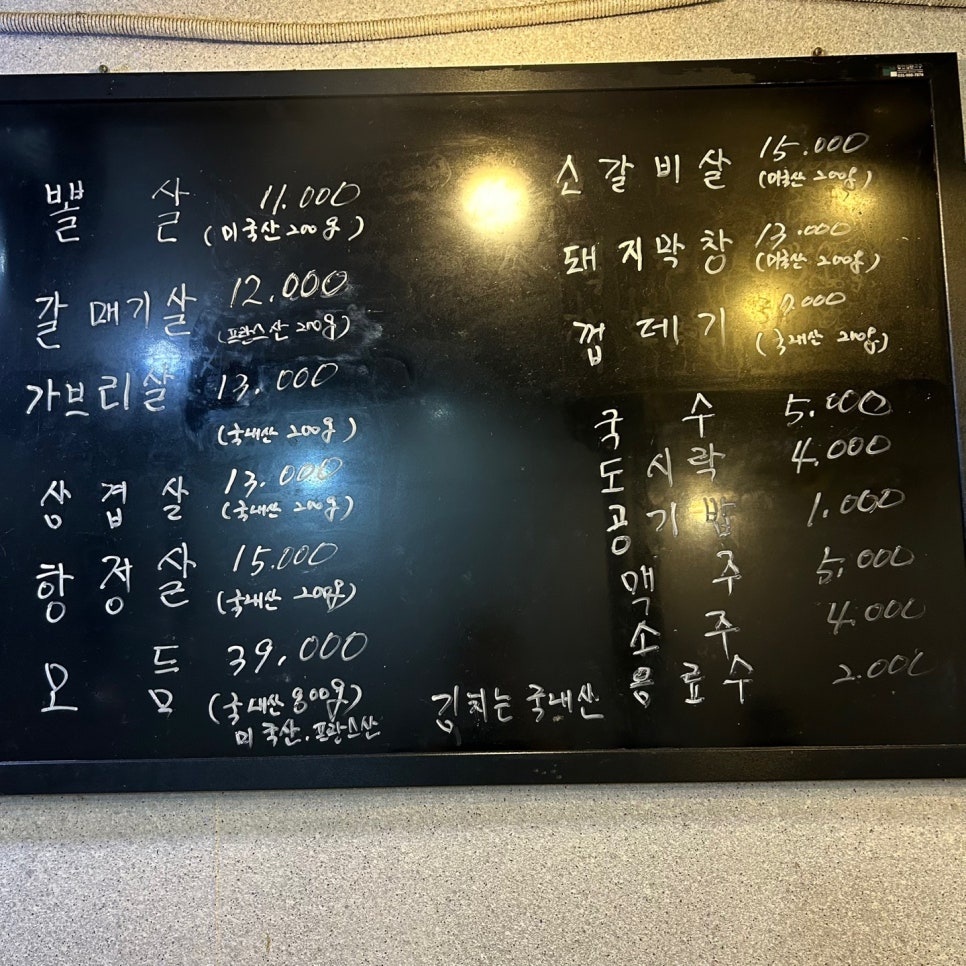 뽈 살 11.000
(미국산 200g)
갈매기살 12.000
(프랑스산 200g)
가브리살 13.000
(국내산 200g)
삼겹살 13.000
(국내산 200g)
항정살 15.000
(국내산 200g)
모 듬 39.000
(국내산 800g)
미국산.프랑스산
소갈비살 15.000
(미국산 200g)
돼지막창 13.000
(미국산 200g)
껍데기
(국내산 200g)
국 수 5.000
도시락 4.000
공기밥 1.000
맥 주 5.000
소 주 4.000
음료수 2.000
김치는 국내산